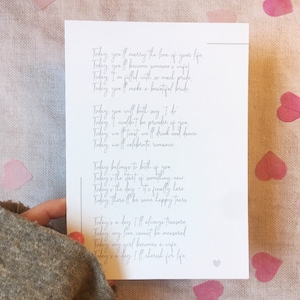 Today you'll marry the love of your life
Today you'll become someone's wife
Today I'm filled with so much pride
Today you'll make a beautiful bride
Today you will both say I do
Today I couldn't be prouder of you
Today we'll toast, we'll drink and dance
Today we'll celebrate romance
Today belongs to both of you
Today's the start of something new
Today's the day - it's finally here
Today there'll be some happy tears
Today's a day I'll always treasure
Today my love cannot be measured
Today my girl becomes a wife
Today's a day I'll cherish for life